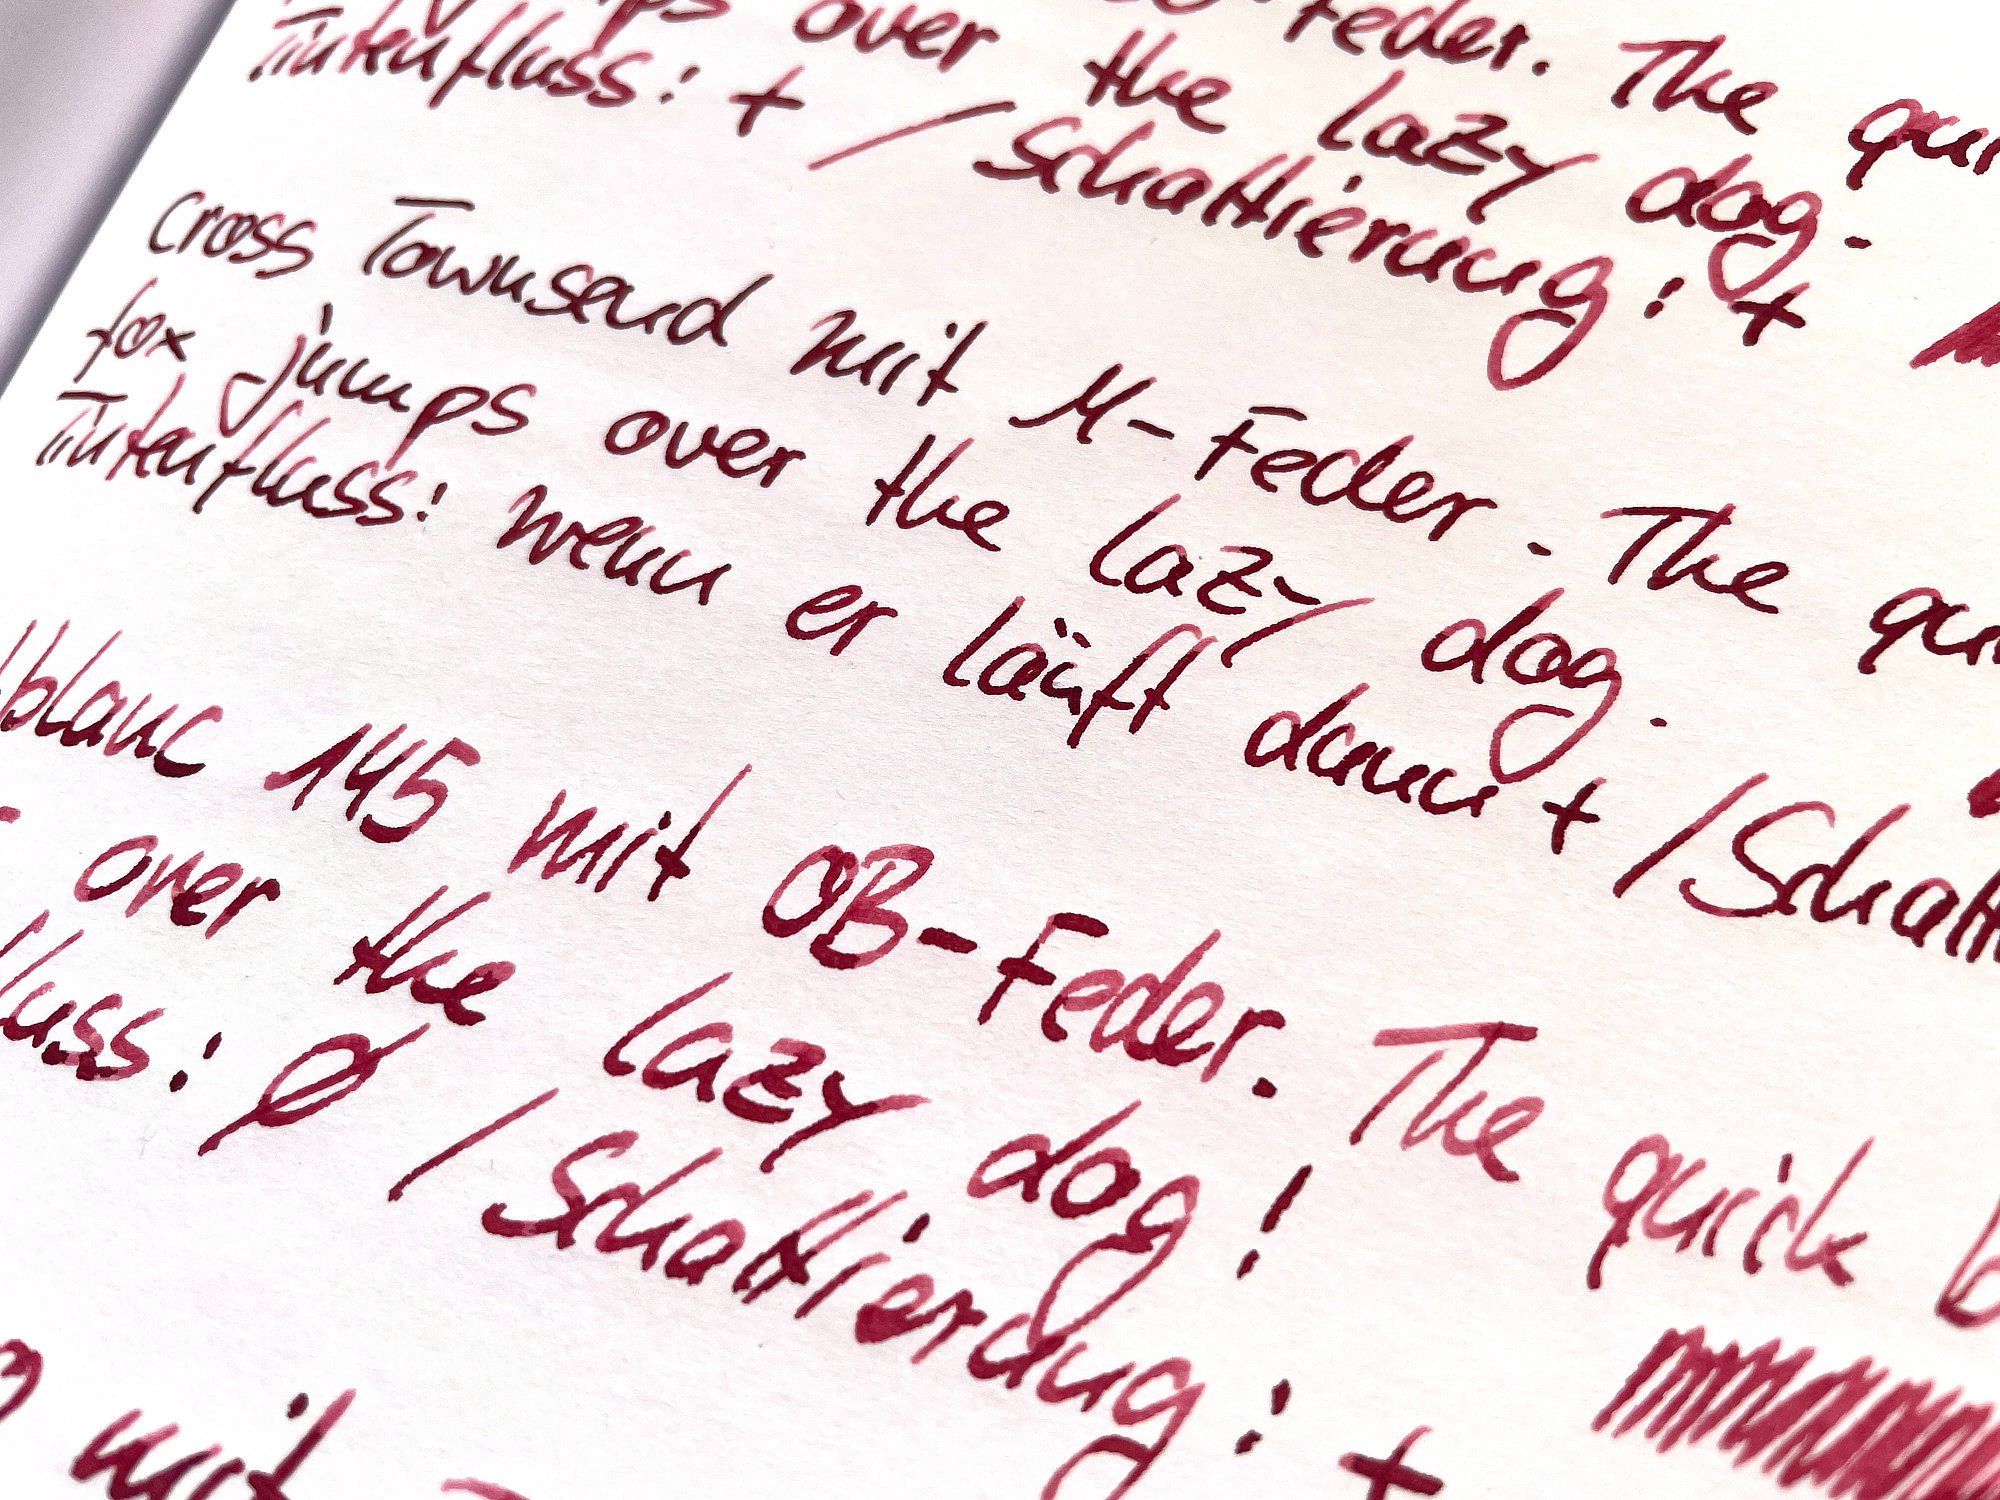 Feder. The
jumps over the lazy dog.
Tintenfluss: + / Schattierung: +
Cross Townsend mit M-Feder. The
fox jumps over the lazy dog.
Tintenfluss: wenn er läuft dann + / Schatt
blanc 145 mit OB-Feder. The quick
over the lazy dog!
fluss: Ø / Schattierung: +
mit